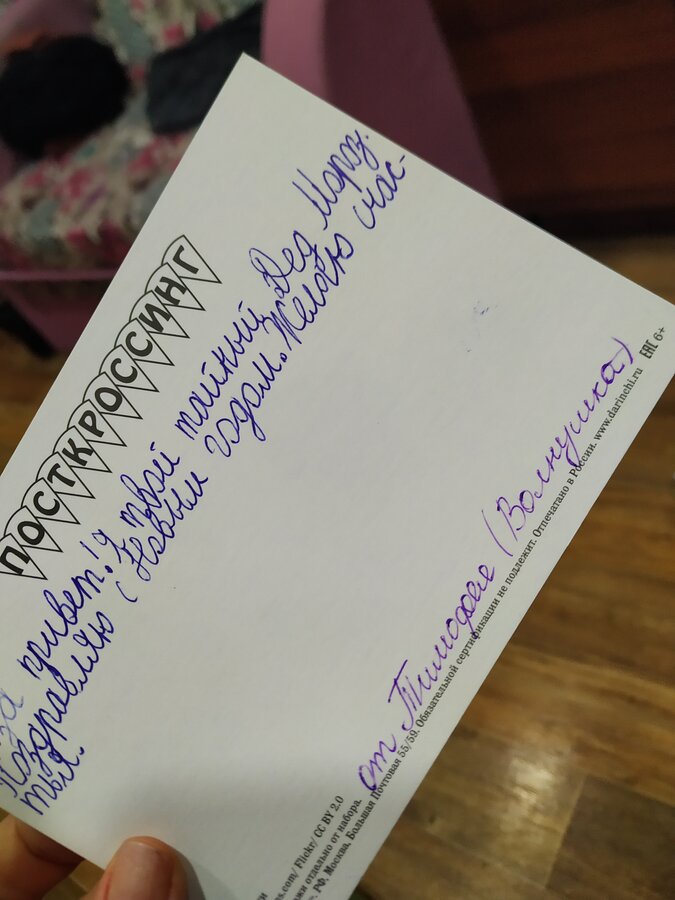 ПОСТКРОССИНГ
за привет! Я твой тайный Дед Мороз.
Поздравляю с Новым годом. Желаю счас-
тья.
от Тимофея (Волнушка)
.com/Flickr/ CC BY 2.0
жи отдельно от набора.
РФ, Москва, Большая Почтовая 55/59. Обязательной сертификации не подлежит. Отпечатано в России. www.darinchi.ru EAC 6+